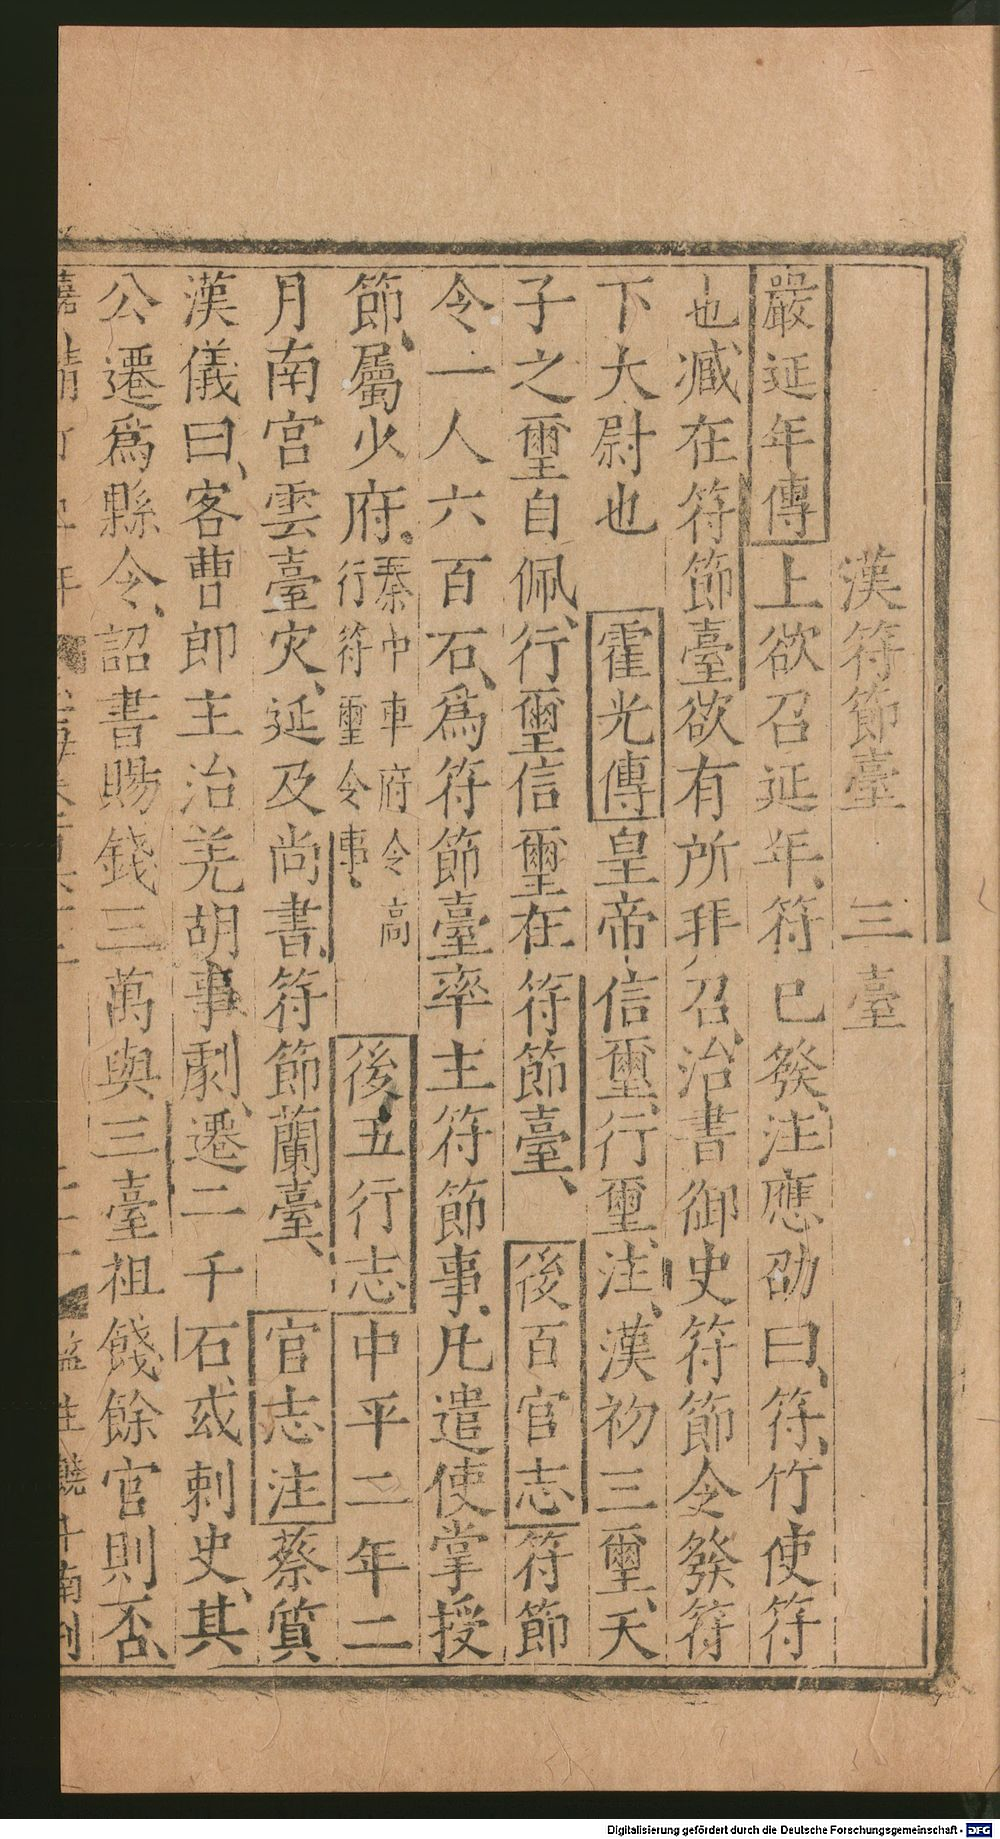 漢符節臺 三臺
嚴延年傳上欲召延年符已發注應劭曰符竹使符
也臧在符節臺欲有所拜召治書御史符節令發符
下大尉也 霍光傳皇帝信璽行璽注漢初三璽天
子之璽自佩行璽信璽在符節臺 後百官志符節
令一人六百石為符節臺率主符節事凡遣使掌授
節屬少府秦中車府令高行符璽令事 後五行志中平二年二
月南宮雲臺灾延及尚書符節蘭臺 官志注蔡質
漢儀曰客曹郎主治羌胡事劇遷二千石或刺史其
公遷為縣令詔書賜錢三萬與三臺祖餞餘官則否
Digitalisierung gefördert durch die Deutsche Forschungsgemeinschaft - DFG